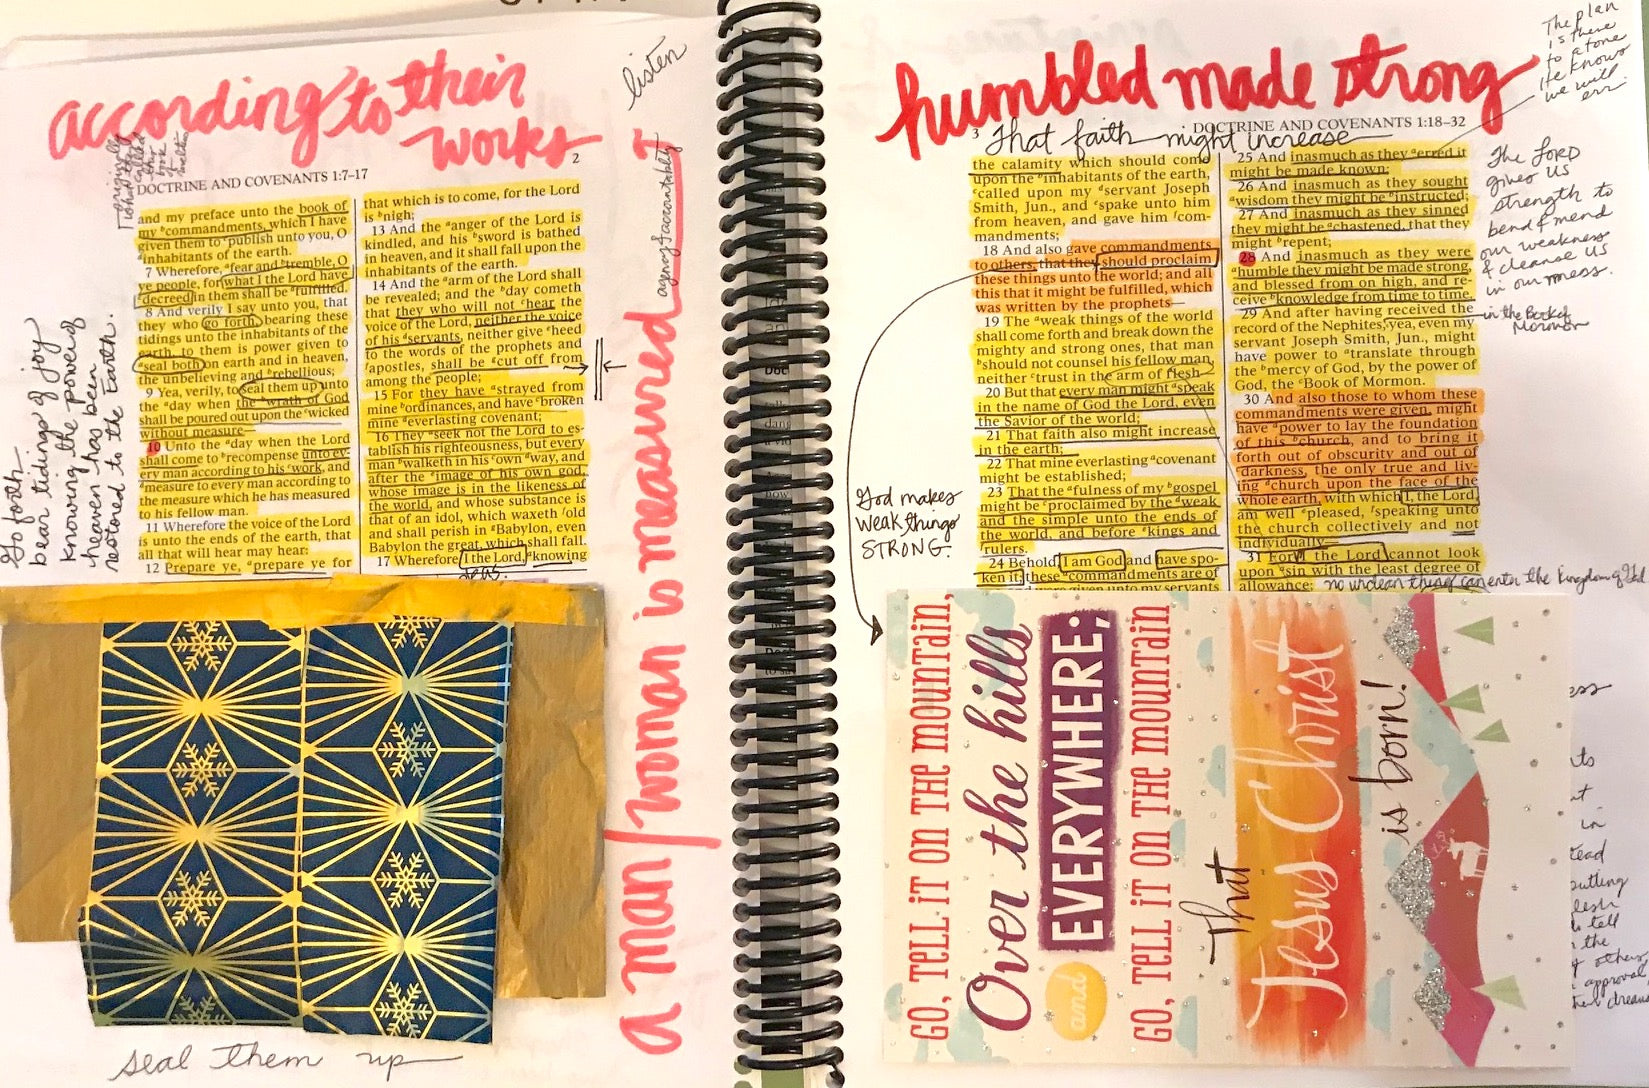 according to their
works
listen
2
DOCTRINE AND COVENANTS 1:7–17
and my preface unto the book of
my bcommandments, which I have
given them to cpublish unto you, O
inhabitants of the earth.
7 Wherefore, afear and btremble, O
ye people, for what I the Lord have
cdecreed in them shall be dfulfilled.
8 And verily I say unto you, that
they who go forth, bearing these
tidings unto the inhabitants of the
earth, to them is power given to
aseal both on earth and in heaven,
the unbelieving and brebellious;
9 Yea, verily, to seal them up unto
the aday when the bwrath of God
shall be poured out upon the cwicked
without measure—
10 Unto the aday when the Lord
shall come to brecompense unto ev-
ery man according to his cwork, and
dmeasure to every man according to
the measure which he has measured
to his fellow man.
11 Wherefore the voice of the Lord
is unto the ends of the earth, that
all that will hear may hear:
12 Prepare ye, aprepare ye for
that which is to come, for the Lord
is bnigh;
13 And the aanger of the Lord is
kindled, and his bsword is bathed
in heaven, and it shall fall upon the
inhabitants of the earth.
14 And the aarm of the Lord shall
be revealed; and the bday cometh
that they who will not chear the
voice of the Lord, neither the voice
of his dservants, neither give eheed
to the words of the prophets and
fapostles, shall be gcut off from
among the people;
15 For they have astrayed from
mine bordinances, and have cbroken
mine deverlasting covenant;
16 They aseek not the Lord to es-
tablish his righteousness, but every
man bwalketh in his cown dway, and
after the eimage of his own god,
whose image is in the likeness of
the world, and whose substance is
that of an idol, which waxeth fold
and shall perish in gBabylon, even
Babylon the great, which shall fall.
17 Wherefore, I the Lord, aknowing
Go forth
bear tidings of joy
knowing the power of
heaven has been
restored to the Earth.
agency & accountability
a man/woman is measured
seal them up
humbled made strong
The plan
is there
to atone
He knows
we will
err
3
DOCTRINE AND COVENANTS 1:18–32
That faith might increase
the calamity which should come
upon the binhabitants of the earth,
ccalled upon my dservant Joseph
Smith, Jun., and espake unto him
from heaven, and gave him fcom-
mandments;
18 And also gave commandments
to others, that they should proclaim
these things unto the world; and all
this that it might be fulfilled, which
was written by the prophets—
19 The aweak things of the world
shall come forth and break down the
mighty and strong ones, that man
bshould not counsel his fellow man,
neither ctrust in the arm of flesh—
20 But that every man might aspeak
in the name of God the Lord, even
the Savior of the world;
21 That faith also might increase
in the earth;
22 That mine everlasting acovenant
might be established;
23 That the afulness of my bgospel
might be cproclaimed by the dweak
and the simple unto the ends of
the world, and before ekings and
frulers.
24 Behold, I am God and have spo-
ken it; these acommandments are of
25 And inasmuch as they aerred it
might be made known;
26 And inasmuch as they sought
awisdom they might be binstructed;
27 And inasmuch as they sinned
they might be achastened, that they
might brepent;
28 And inasmuch as they were
ahumble they might be made strong,
and blessed from on high, and re-
ceive bknowledge from time to time.
29 And after having received the
record of the Nephites, yea, even my
servant Joseph Smith, Jun., might
have power to atranslate through
the bmercy of God, by the power of
God, the cBook of Mormon.
30 And also those to whom these
commandments were given, might
have apower to lay the foundation
of this bchurch, and to bring it
forth out of obscurity and out of
cdarkness, the only true and liv-
ing dchurch upon the face of the
whole earth, with which I, the Lord,
am well epleased, fspeaking unto
the church collectively and not
individually—
31 For I the Lord cannot look
upon asin with the least degree of
allowance; no unclean thing can enter the kingdom of God
The LORD
gives us
strength to
bend & mend
our weakness
& cleanse us
in our mess.
in the Book of
Mormon
God makes
weak things
STRONG.
GO, TELL IT ON THE MOUNTAIN,
Over the hills
and EVERYWHERE;
GO, TELL IT ON THE MOUNTAIN
That
Jesus Christ
is born!
in
tell
the
approval